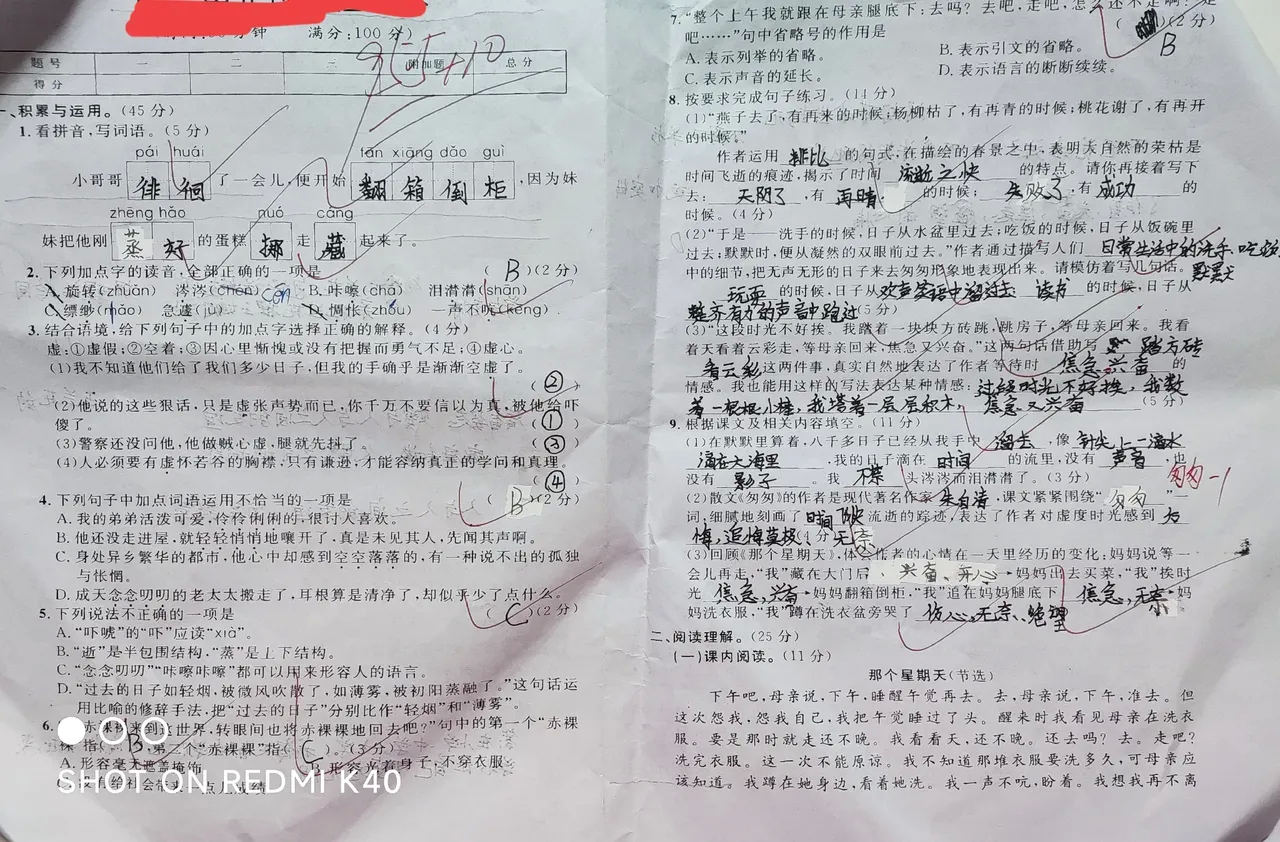 满分:100分)
题号 一 二 三 附加题 总分
得分
95.5+10
一、积累与运用。(45分)
1.看拼音,写词语。(5分)
pái huái fān xiāng dǎo guì
小哥哥 徘徊 了一会儿,便开始 翻箱倒柜 ,因为妹
zhēng hǎo nuó cáng
妹把他刚 蒸好 的蛋糕 挪 走 藏 起来了。
2.下列加点字的读音,全部正确的一项是 ( B )(2分)
A.旋转(zhuàn) 涔涔(chén) cén B.咔嚓(chā) 泪潸潸(shān)
C.缥缈(miǎo) 急遽(jù) D.惆怅(zhóu) 一声不吭(kēng)
3.结合语境,给下列句子中的加点字选择正确的解释。(4分)
虚:①虚假;②空着;③因心里惭愧或没有把握而勇气不足;④虚心。
(1)我不知道他们给了我们多少日子,但我的手确乎是渐渐空虚了。
( ② )
(2)他说的这些狠话,只是虚张声势而已,你千万不要信以为真,被他给吓
傻了。 ( ① )
(3)警察还没问他,他做贼心虚,腿就先抖了。 ( ③ )
(4)人必须要有虚怀若谷的胸襟,只有谦逊,才能容纳真正的学问和真理。
( ④ )
4.下列句子中加点词语运用不恰当的一项是 ( B )(2分)
A.我的弟弟活泼可爱,伶伶俐俐的,很讨人喜欢。
B.他还没走进屋,就轻轻悄悄地嚷开了,真是未见其人,先闻其声啊。
C.身处异乡繁华的都市,他心中却感到空空落落的,有一种说不出的孤独
与怅惘。
D.成天念念叨叨的老太太搬走了,耳根算是清净了,却似乎少了点什么。
5.下列说法不正确的一项是 ( C )(2分)
A.“吓唬”的“吓”应读“xià”。
B.“逝”是半包围结构,“蒸”是上下结构。
C.“念念叨叨”“咔嚓咔嚓”都可以用来形容人的语言。
D.“过去的日子如轻烟,被微风吹散了,如薄雾,被初阳蒸融了。”这句话运
用比喻的修辞手法,把“过去的日子”分别比作“轻烟”和“薄雾”。
6. 赤裸裸来到这世界,转眼间也将赤裸裸地回去吧?”句中的第一个“赤裸
裸”指( B ),第二个“赤裸裸”指( C )。(3分)
A.形容毫无遮盖掩饰 B.形容光着身子,不穿衣服
SHOT ON REDMI K40
7.“整个上午我就跟在母亲腿底下:去吗?去吧,走吧,怎么还不走啊?走
吧……”句中省略号的作用是 ( )(2分)
B
A.表示列举的省略。 B.表示引文的省略。
C.表示声音的延长。 D.表示语言的断断续续。
8.按要求完成句子练习。(14分)
(1)“燕子去了,有再来的时候;杨柳枯了,有再青的时候;桃花谢了,有再开
的时候。”
作者运用 排比 的句式,在描绘的春景之中,表明大自然的荣枯是
时间飞逝的痕迹,揭示了时间 流逝之快 的特点。请你再接着写下
去: 天阴了 ,有 再晴 的时候; 失败了 ,有 成功 的
时候。(4分)
(2)“于是——洗手的时候,日子从水盆里过去;吃饭的时候,日子从饭碗里
过去;默默时,便从凝然的双眼前过去。”作者通过描写人们 日常生活中的洗手吃饭
中的细节,把无声无形的日子来去匆匆形象地表现出来。请模仿着写几句话。
玩耍 的时候,日子从 欢声笑语中溜过去 读书 的时候,日子从
整齐有力的声音中跑过 (5分)
(3)“这段时光不好挨。我踏着一块块方砖跳,跳房子,等母亲回来。我看
着天看着云彩走,等母亲回来,焦急又兴奋。”这两句话借助写 踏方砖
看云彩 这两件事,真实自然地表达了作者等待时 焦急兴奋 的
情感。我也能用这样的写法表达某种情感: 这段时光不好挨,我数
着一根根小棒,我搭着一层层积木, 焦急又兴奋 (5分)
9.根据课文及相关内容填空。(11分)
(1)在默默里算着,八千多日子已经从我手中 溜去 ,像 针尖上一滴水
滴在大海里 ,我的日子滴在 时间 的流里,没有 声音 ,也
没有 影子 。我 不禁 头涔涔而泪潸潸了。(3分) 匆匆 -1
(2)散文《匆匆》的作者是现代著名作家 朱自清 ,课文紧紧围绕“ 匆匆 ”一
词,细腻地刻画了 时间 流逝的踪迹,表达了作者对虚度时光感到 无
(3)回顾《那个星期天》,体会作者的心情在一天里经历的变化:妈妈说等一
会儿再走,“我”藏在大门后 兴奋、开心 →妈妈出去买菜,“我”挨时
光 焦急,兴奋 →妈妈翻箱倒柜,“我”追在妈妈腿底下 焦急,无奈 →妈
妈洗衣服,“我”蹲在洗衣盆旁哭了 伤心,无奈、绝望
二、阅读理解。(25分)
(一)课内阅读。(11分)
那个星期天(节选)
下午吧,母亲说,下午,睡醒午觉再去。去,母亲说,下午,准去。但
这次怨我,怨我自己,我把午觉睡过了头。醒来时我看见母亲在洗衣
服。要是那时就走还不晚。我看看天,还不晚。还去吗?去。走吧?
洗完衣服。这一次不能原谅。我不知道那堆衣服要洗多久,可母亲应
该知道。我蹲在她身边,看着她洗。我一声不吭,盼着。我想我再不离